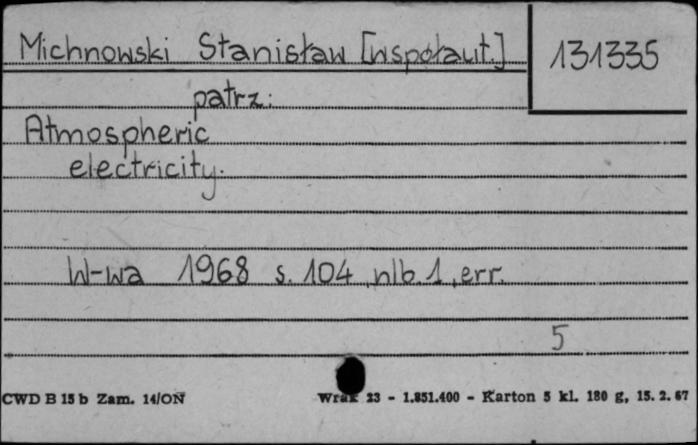 Michnowski Stanisław [współaut.] 131335
patrz:
Atmospheric
electricity.
W-wa 1968 s. 104, nlb. 1, err.
5
CWD B 15 b Zam. 14/ON Wrak 23 - 1.851.400 - Karton 5 kl. 180 g, 15. 2. 67